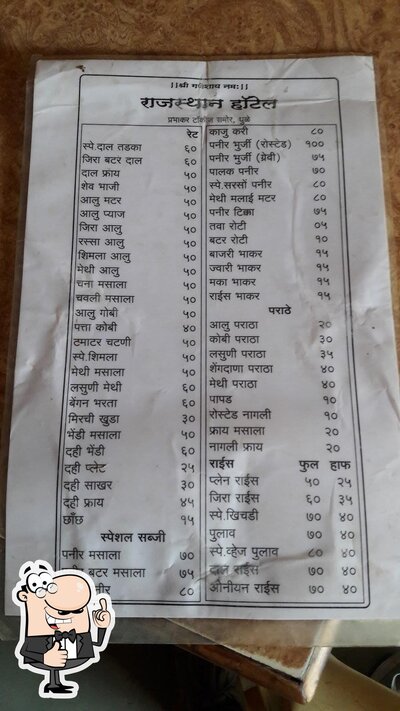 ||श्री गणेशाय नमः||
राजस्थान हॉटेल
प्रभाकर टॉकीज समोर, धुळे
रेट
स्पे.दाल तडका ६०
जिरा बटर दाल ६०
दाल फ्राय ५०
शेव भाजी ५०
आलु मटर ५०
आलु प्याज ५०
जिरा आलु ५०
रस्सा आलु ५०
शिमला आलु ५०
मेथी आलु ५०
चना मसाला ५०
चवली मसाला ५०
आलु गोबी ५०
पत्ता कोबी ४०
टमाटर चटणी ५०
स्पे.शिमला ५०
मेथी मसाला ५०
लसुणी मेथी ६०
बेंगन भरता ६०
मिरची खुडा ३०
भेंडी मसाला ५०
दही भेंडी ६०
दही प्लेट २५
दही साखर ३०
दही फ्राय ४५
छाँछ १५
स्पेशल सब्जी
पनीर मसाला ७०
बटर मसाला ७५
८०
काजु करी ८०
पनीर भुर्जी (रोस्टेड) १००
पनीर भुर्जी (ग्रेबी) ७५
पालक पनीर ७०
स्पे.सरसों पनीर ८०
मेथी मलाई मटर ८०
पनीर टिक्का ७५
तवा रोटी ०५
बटर रोटी १०
बाजरी भाकर १५
ज्वारी भाकर १५
मका भाकर १५
राईस भाकर १५
पराठे
आलु पराठा २०
कोबी पराठा ३०
लसुणी पराठा ३५
शेंगदाणा पराठा ४०
मेथी पराठा ४०
पापड १०
रोस्टेड नागली १०
फ्राय मसाला २०
नागली फ्राय २०
राईस फुल हाफ
प्लेन राईस ५० २५
जिरा राईस ६० ३५
स्पे.खिचडी ७० ४०
पुलाव ७० ४०
स्पे.व्हेज पुलाव ८० ४०
दाल राईस ७० ४०
ओनीयन राईस ७० ४०